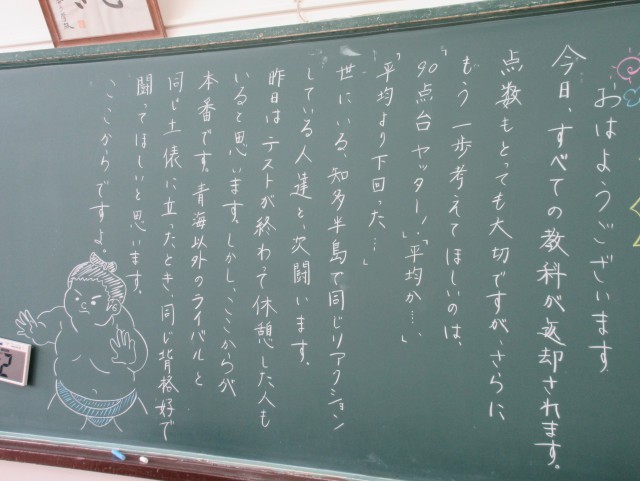 おはようございます。
今日、すべての教科が返却されます。
点数もとっても大切ですが、さらに
もう一歩考えてほしいのは、
「90点台ヤッター!」「平均か…」
「平均より下回った…」
世にいる、知多半島で同じリアクション
している人達と、次闘います。
昨日はテストが終わって休憩した人も
いると思います。しかし、ここからが
本番です。青海以外のライバルと
同じ土俵に立ったとき、同じ背格好で
闘ってほしいと思います。
ここからですよ。